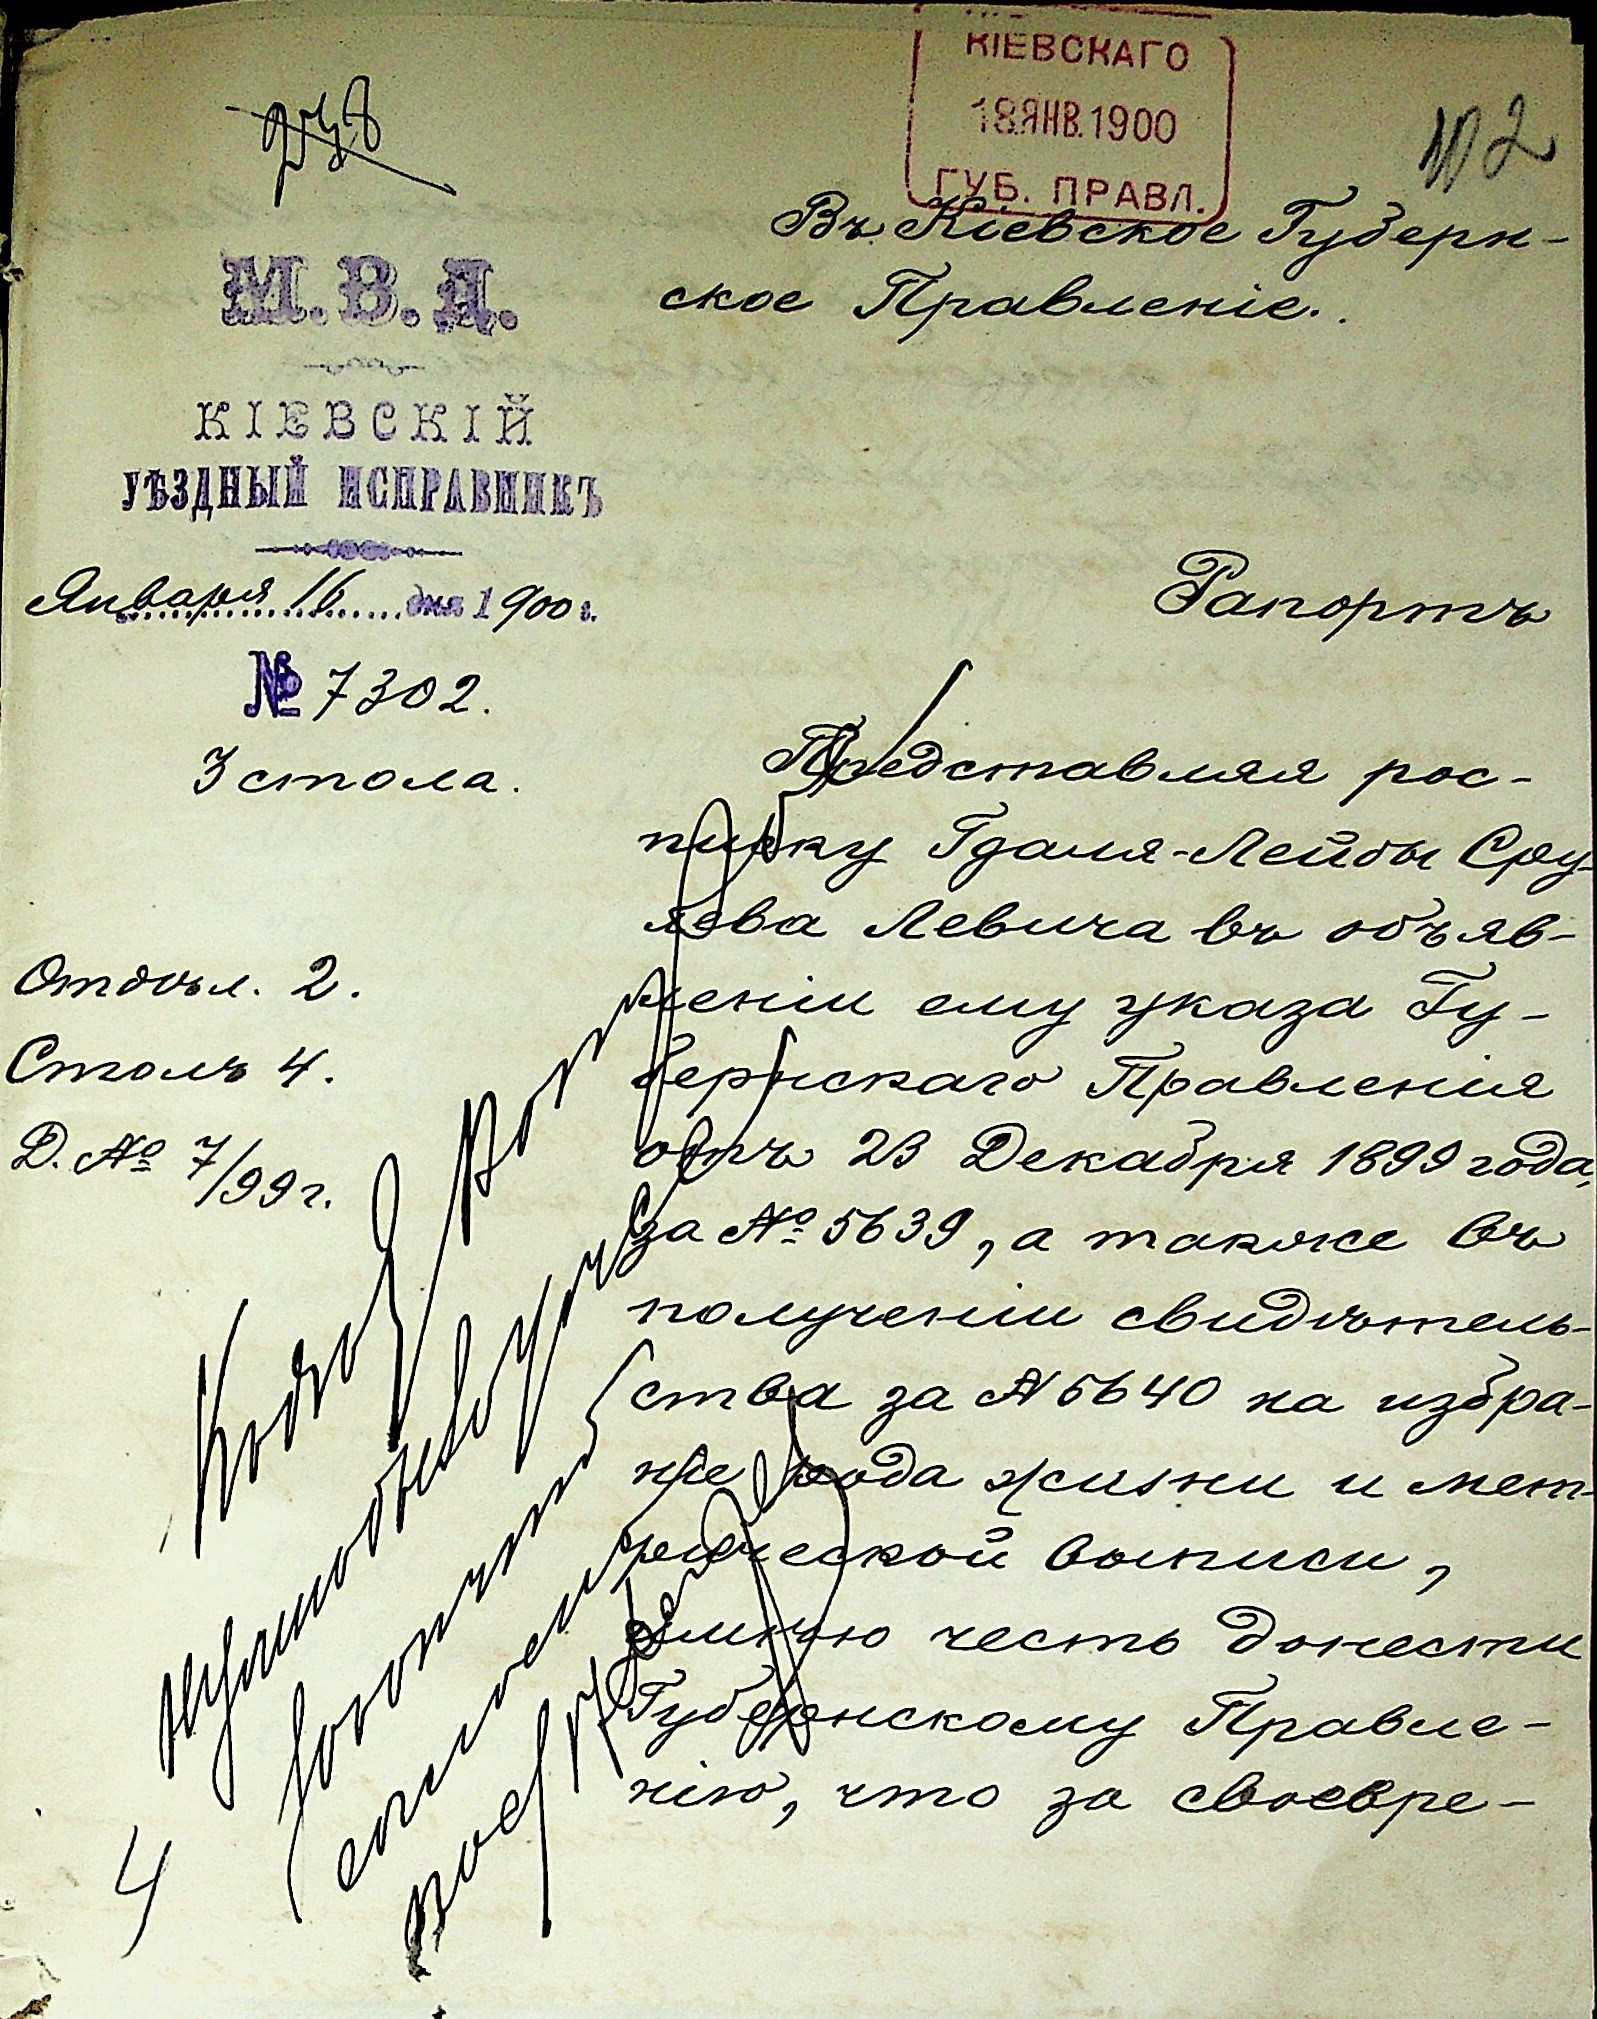 КІЕВСКАГО
18 ЯНВ. 1900
ГУБ. ПРАВЛ.
Въ Кіевское Губерн-
ское Правленіе.
М. В. Д.
КІЕВСКІЙ
УѢЗДНЫЙ ИСПРАВНИКЪ
Января 16 дня 1900 г.
№ 7302.
3 стола.
Отдѣл. 2.
Столъ 4.
Д. № 7/99 г.
Рапортъ
Представляя рос-
писку Гдаля-Лейбы Сру-
лева Левича въ объяв-
леніи ему указа Гу-
бернскаго Правленія
отъ 23 Декабря 1899 года,
за № 5639, а также въ
полученіи свидѣтель-
ства за № 5640 на избра-
ніе рода жизни и мет-
рической выписи,
имѣю честь донести
Губернскому Правле-
нію, что за своевре-
4